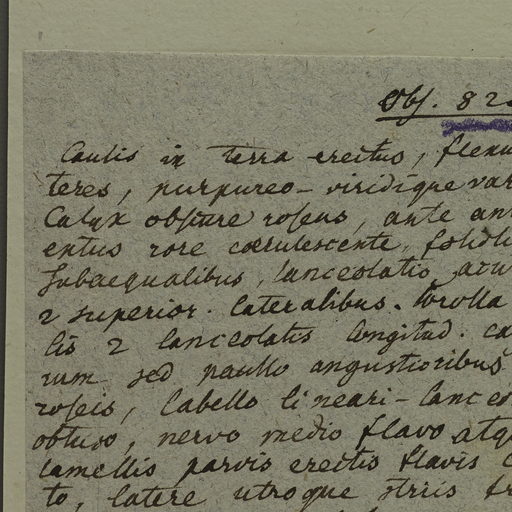 Obs. 82
Caulis in terra erectus, flexu
teres, purpureo-viridique var
Calyx obscure roseus, ante an
entus rore coerulescente, foliol
subaequalibus, lanceolatis, acu
2 superior. lateralibus. Corolla
lis 2 lanceolatis longitud. ca
rum sed paullo angustioribus
roseis, labello lineari-lanceo
obtuso, nervo medio flavo atq
lamellis parvis erectis flavis
to, latere utroque striis